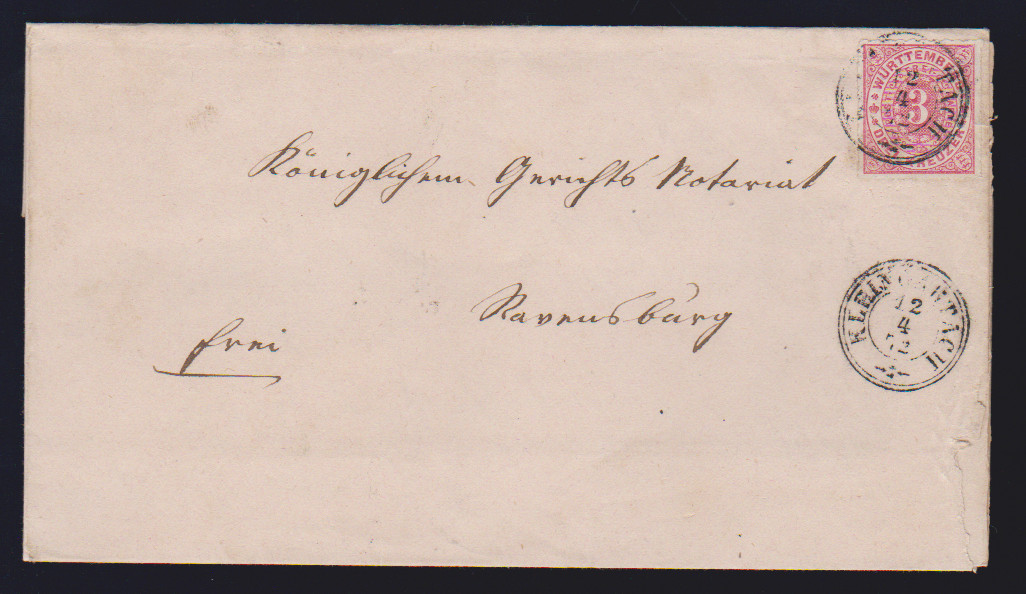 WÜRTTEMBERG
3
KREUZER
12
4
TACH
Königlichem Gerichts Notariat
Ravensburg
frei
KLEINGARTACH
12
4
72